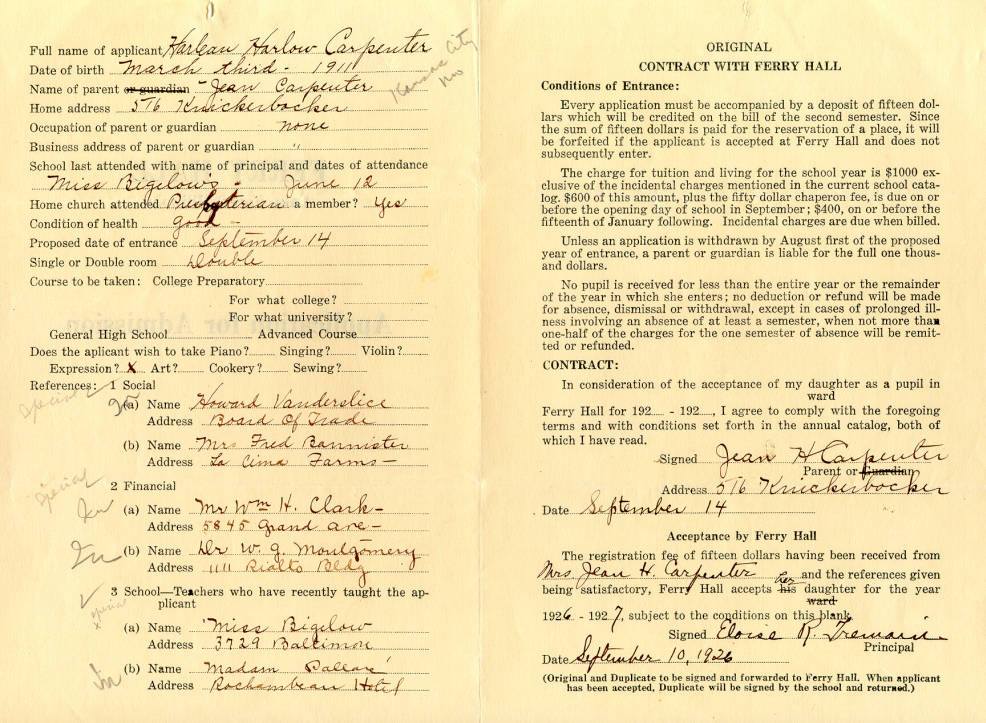 Full name of applicant Harlean Harlow Carpenter
Date of birth March third - 1911
Name of parent or guardian - Jean Carpenter
Kansas City
Mo
Home address 516 Knickerbocker
Occupation of parent or guardian none
Business address of parent or guardian "
School last attended with name of principal and dates of attendance
Miss Bigelow's - June 12
Home church attended Presbyterian a member? Yes
Condition of health Good -
Proposed date of entrance September 14
Single or Double room Double
Course to be taken: College Preparatory
For what college?
For what university?
General High School Advanced Course
Does the aplicant wish to take Piano? Singing? Violin?
Expression? X Art? Cookery? Sewing?
References: 1 Social
Special
(a) Name Howard Vanderslice
Address Board Of Trade
(b) Name Mrs Fred Bannister
Address La Cima Farms -
2 Financial
Special
(a) Name Mr Wm H. Clark -
Address 5845 Grand ave -
(b) Name Dr W. G. Montgomery
Address 1111 Rialto Bldg
3 School—Teachers who have recently taught the ap-
plicant
special
(a) Name Miss Bigelow
Address 3729 Baltimore
(b) Name Madam
Address Rochambeau Hotel
ORIGINAL
CONTRACT WITH FERRY HALL
Conditions of Entrance:
Every application must be accompanied by a deposit of fifteen dol-
lars which will be credited on the bill of the second semester. Since
the sum of fifteen dollars is paid for the reservation of a place, it will
be forfeited if the applicant is accepted at Ferry Hall and does not
subsequently enter.
The charge for tuition and living for the school year is $1000 ex-
clusive of the incidental charges mentioned in the current school cata-
log. $600 of this amount, plus the fifty dollar chaperon fee, is due on or
before the opening day of school in September; $400, on or before the
fifteenth of January following. Incidental charges are due when billed.
Unless an application is withdrawn by August first of the proposed
year of entrance, a parent or guardian is liable for the full one thous-
and dollars.
No pupil is received for less than the entire year or the remainder
of the year in which she enters; no deduction or refund will be made
for absence, dismissal or withdrawal, except in cases of prolonged ill-
ness involving an absence of at least a semester, when not more than
one-half of the charges for the one semester of absence will be remit-
ted or refunded.
CONTRACT:
In consideration of the acceptance of my daughter as a pupil in
ward
Ferry Hall for 192 - 192 , I agree to comply with the foregoing
terms and with conditions set forth in the annual catalog, both of
which I have read.
Signed Jean H Carpenter
Parent or Guardian
Address 516 Knickerbocker
Date September 14
Acceptance by Ferry Hall
The registration fee of fifteen dollars having been received from
Mrs. Jean H. Carpenter and the references given
her
being satisfactory, Ferry Hall accepts his daughter for the year
ward
1926 - 1927, subject to the conditions on this blank.
Signed Eloise R. Tremain
Principal
Date September 10, 1926
(Original and Duplicate to be signed and forwarded to Ferry Hall. When applicant
has been accepted, Duplicate will be signed by the school and returned.)